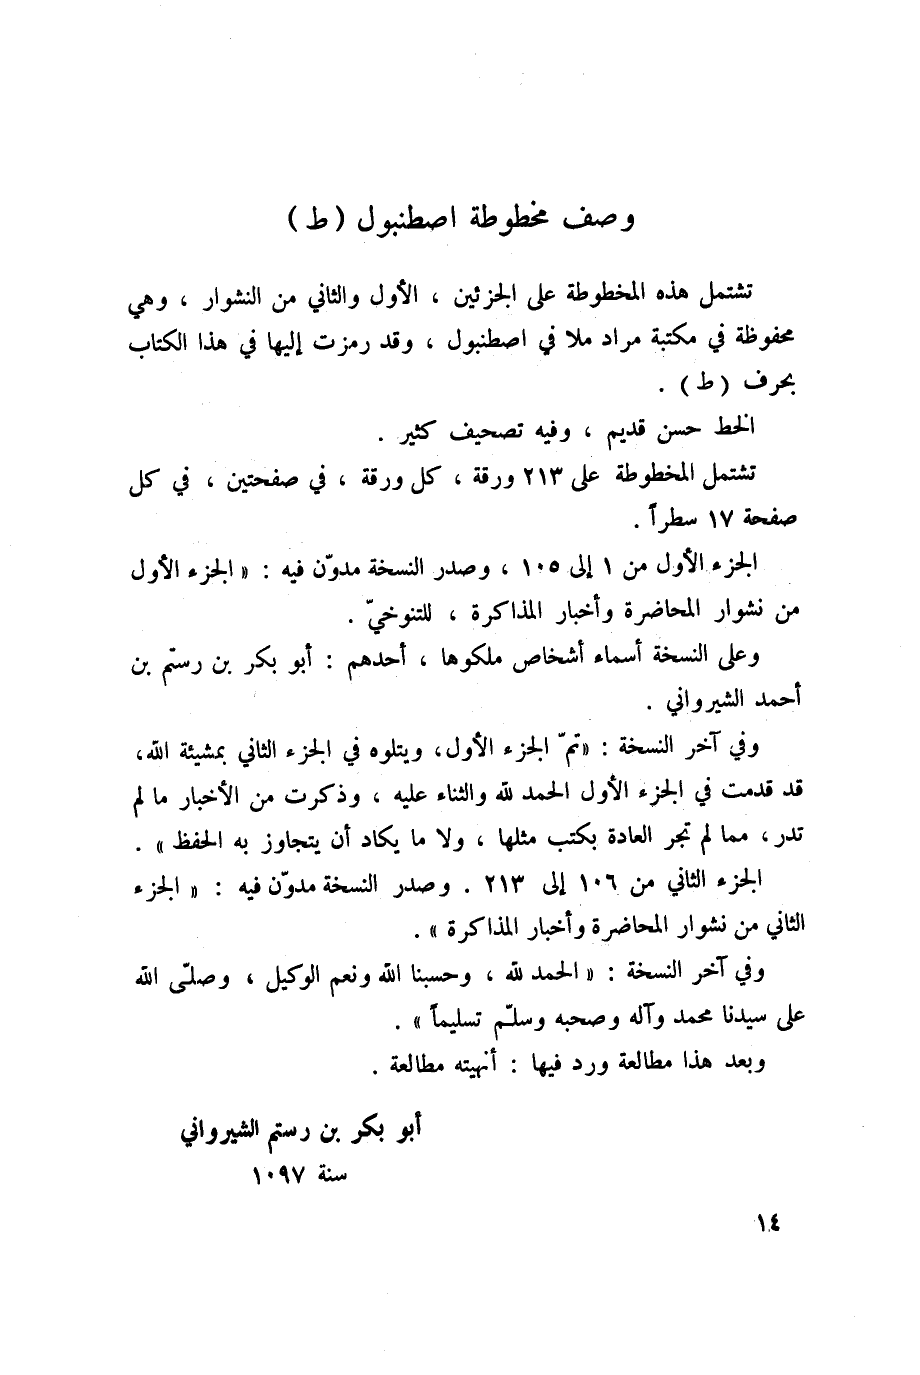 وصف مخطوطة اصطنبول (ط)
تشتمل هذه المخطوطة على الجزئين ، الأول والثاني من النشوار ، وهي
محفوظة في مكتبة مراد ملا في اصطنبول ، وقد رمزت إليها في هذا الكتاب
بحرف (ط) .
الخط حسن قديم ، وفيه تصحيف كثير .
تشتمل المخطوطة على ٢١٣ ورقة ، كل ورقة ، في صفحتين ، في كل
صفحة ١٧ سطراً .
الجزء الأول من ١ إلى ١٠٥ ، وصدر النسخة مدوّن فيه : « الجزء الأول
من نشوار المحاضرة وأخبار المذاكرة ، للتنوخيّ .
وعلى النسخة أسماء أشخاص ملكوها ، أحدهم : أبو بكر بن رستم بن
أحمد الشيرواني .
وفي آخر النسخة : «تمّ الجزء الأول، ويتلوه في الجزء الثاني بمشيئة الله،
قد قدمت في الجزء الأول الحمد لله والثناء عليه ، وذكرت من الأخبار ما لم
تدر ، مما لم تجر العادة بكتب مثلها ، ولا ما يكاد أن يتجاوز به الحفظ » .
الجزء الثاني من ١٠٦ إلى ٢١٣ . وصدر النسخة مدوّن فيه : « الجزء
الثاني من نشوار المحاضرة وأخبار المذاكرة » .
وفي آخر النسخة : « الحمد لله ، وحسبنا الله ونعم الوكيل ، وصلّى الله
على سيدنا محمد وآله وصحبه وسلّم تسليماً » .
وبعد هذا مطالعة ورد فيها : أنهيته مطالعة .
أبو بكر بن رستم الشيرواني
سنة ١٠٩٧
١٤